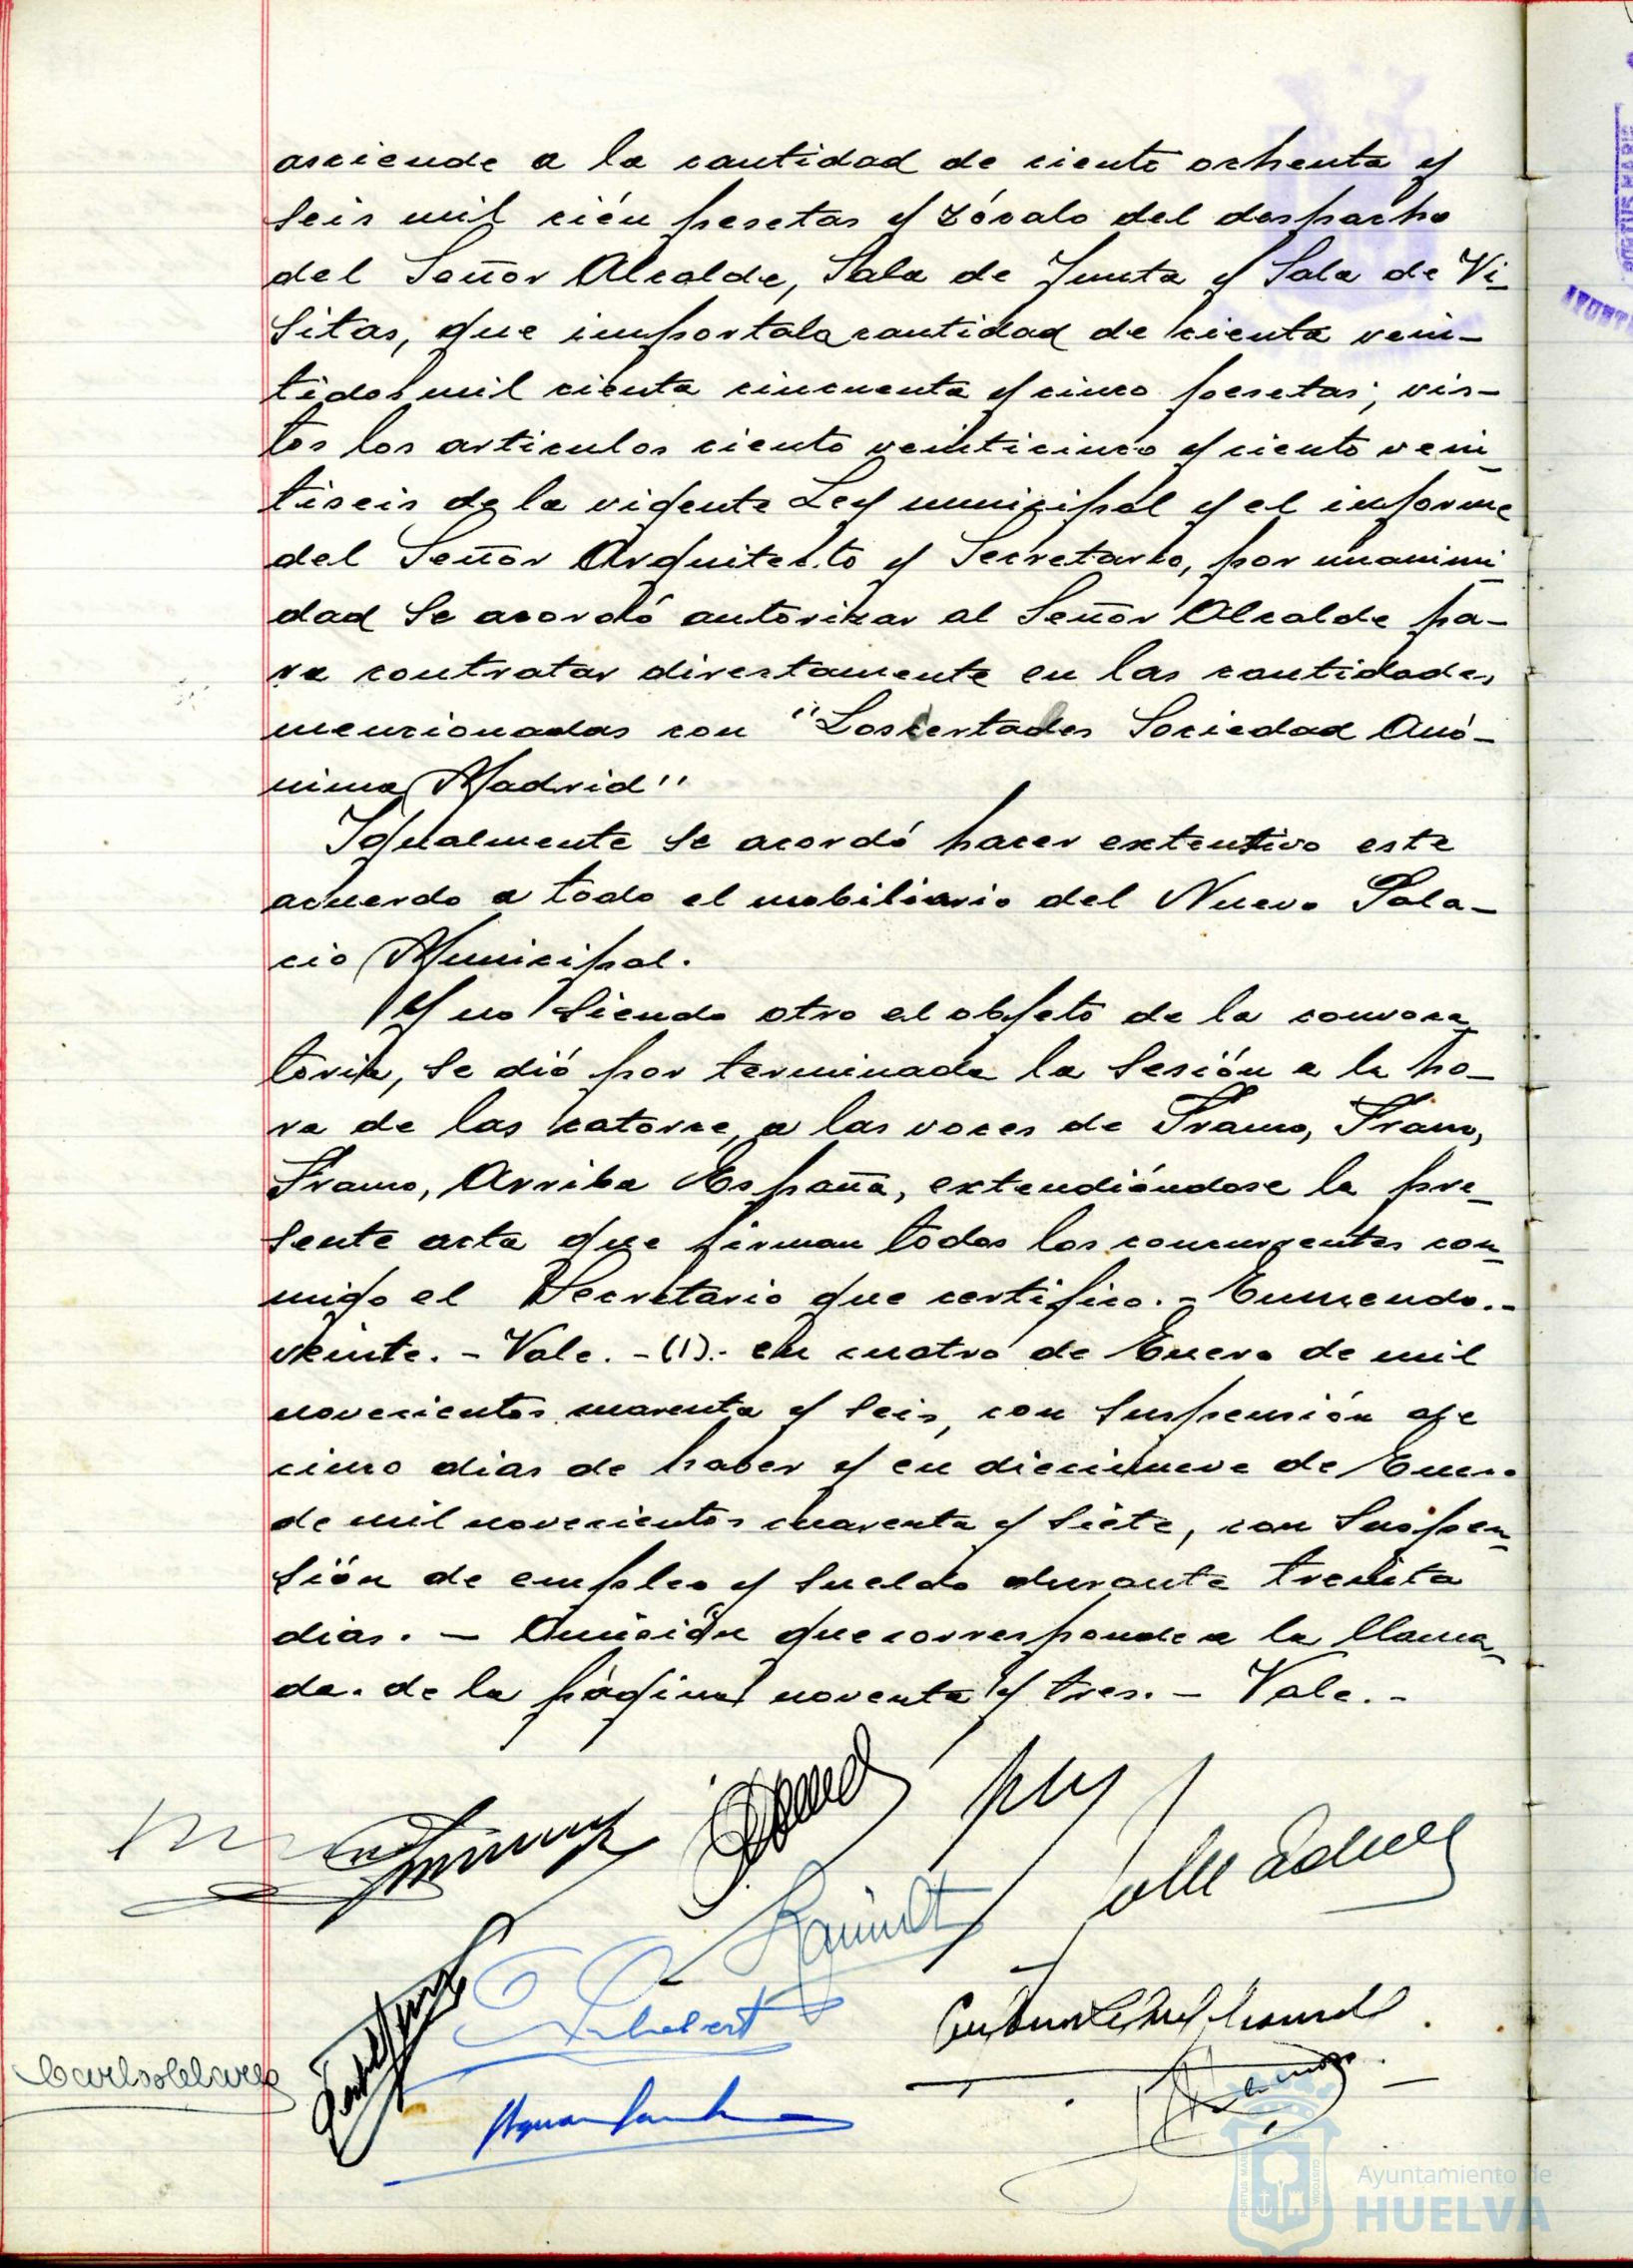 asciende a la cantidad de ciento ochenta y
seis mil cién pesetas y zócalo del despacho
del Señor Alcalde, Sala de Junta y Sala de Vi-
sitas, que importala cantidad de cienta vein-
tidos mil cienta cincuenta y cinco pesetas; vis-
tos los articulos ciento veinticinco y ciento vein-
tiseis de la vigente Ley municipal y el informe
del Señor Arquitecto y Secretario, por unanimi-
dad se acordó autorizar al Señor Alcalde pa-
ra contratar directamente en las cantidades
mencionadas con "Loscertades Sociedad Anó-
nima Madrid"
Igualmente se acordó hacer extentivo este
acuerdo a todo el mobiliario del Nuevo Pala-
cio Municipal.
Y no siendo otro el objeto de la convoca-
toria, se dió por terminada la sesión a la ho-
ra de las catorce, a las voces de Franco, Franco,
Franco, Arriba España, extendiéndose la pre-
sente acta que firman todos los concurrentes con-
migo el Secretario que certifico.- Enmendo.-
veinte.- Vale.-(1).- en cuatro de Enero de mil
novecientos cuarenta y seis, con suspensión de
cinco dias de haber y en diecinueve de Enero
de mil novecientos cuarenta y siete, con suspen-
sión de empleo y sueldo durante treinta
dias. - Omisión que corresponde a la llama-
da. de la página noventa y tres. - Vale.-
Ayuntamiento de
HUELVA